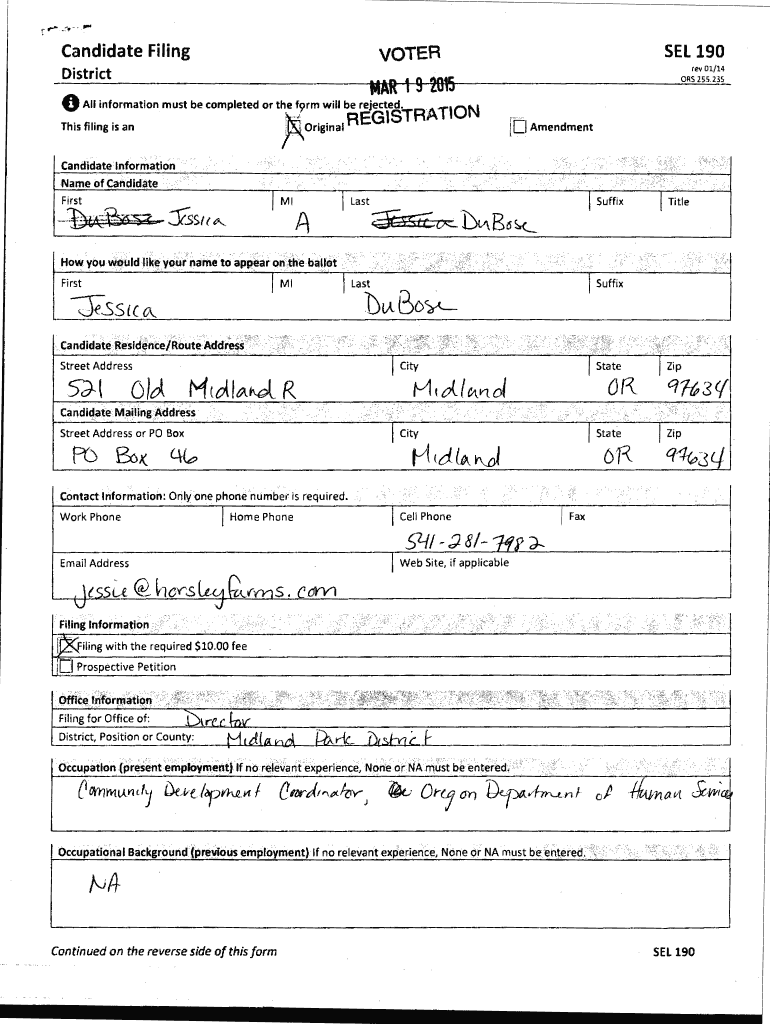 Candidate Filing VOTER SEL 190
District MAR 19 2015 rev 01/14
ORS 255.235
All information must be completed or the form will be rejected. REGISTRATION
This filing is an X Original Amendment
Candidate Information
Name of Candidate
First MI Last Suffix Title
DuBose Jessica A Jessica DuBose
How you would like your name to appear on the ballot
First MI Last Suffix
Jessica DuBose
Candidate Residence/Route Address
Street Address City State Zip
521 Old Midland R Midland OR 97634
Candidate Mailing Address
Street Address or PO Box City State Zip
PO Box 46 Midland OR 97634
Contact Information: Only one phone number is required.
Work Phone Home Phone Cell Phone Fax
541-281-7982
Email Address Web Site, if applicable
jessie@horsleyfarms.com
Filing Information
X Filing with the required $10.00 fee
Prospective Petition
Office Information
Filing for Office of: Director
District, Position or County: Midland Park District
Occupation (present employment) If no relevant experience, None or NA must be entered.
Community Development Coordinator, Oregon Department of Human Services
Occupational Background (previous employment) If no relevant experience, None or NA must be entered.
NA
Continued on the reverse side of this form SEL 190